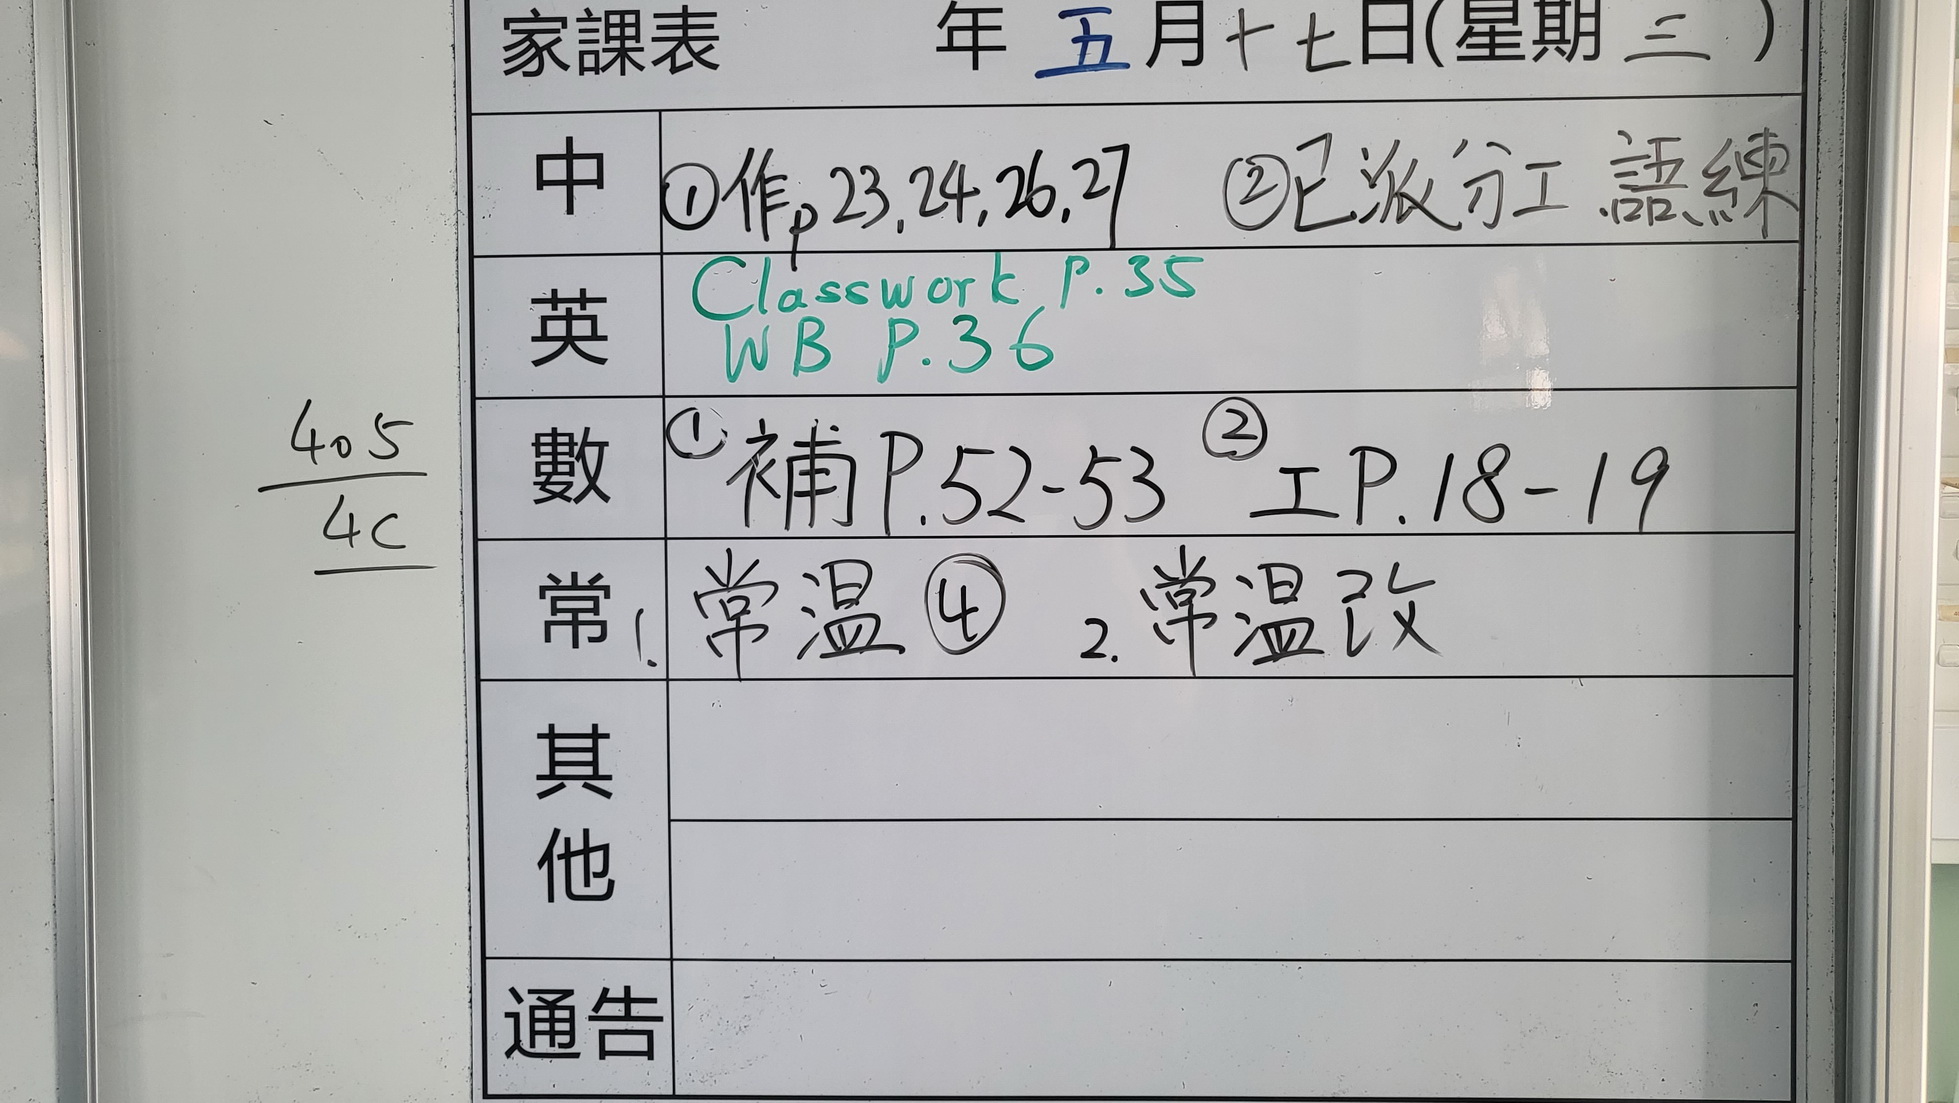 家課表 年 五 月 十七 日(星期 三 )
中 ①作p 23,24,26,27 ②已派分工 語練
英 Classwork P.35
WB P.36
405
4C
數 ①補P.52-53 ②工P.18-19
常 1. 常温④ 2. 常温改
其他
通告